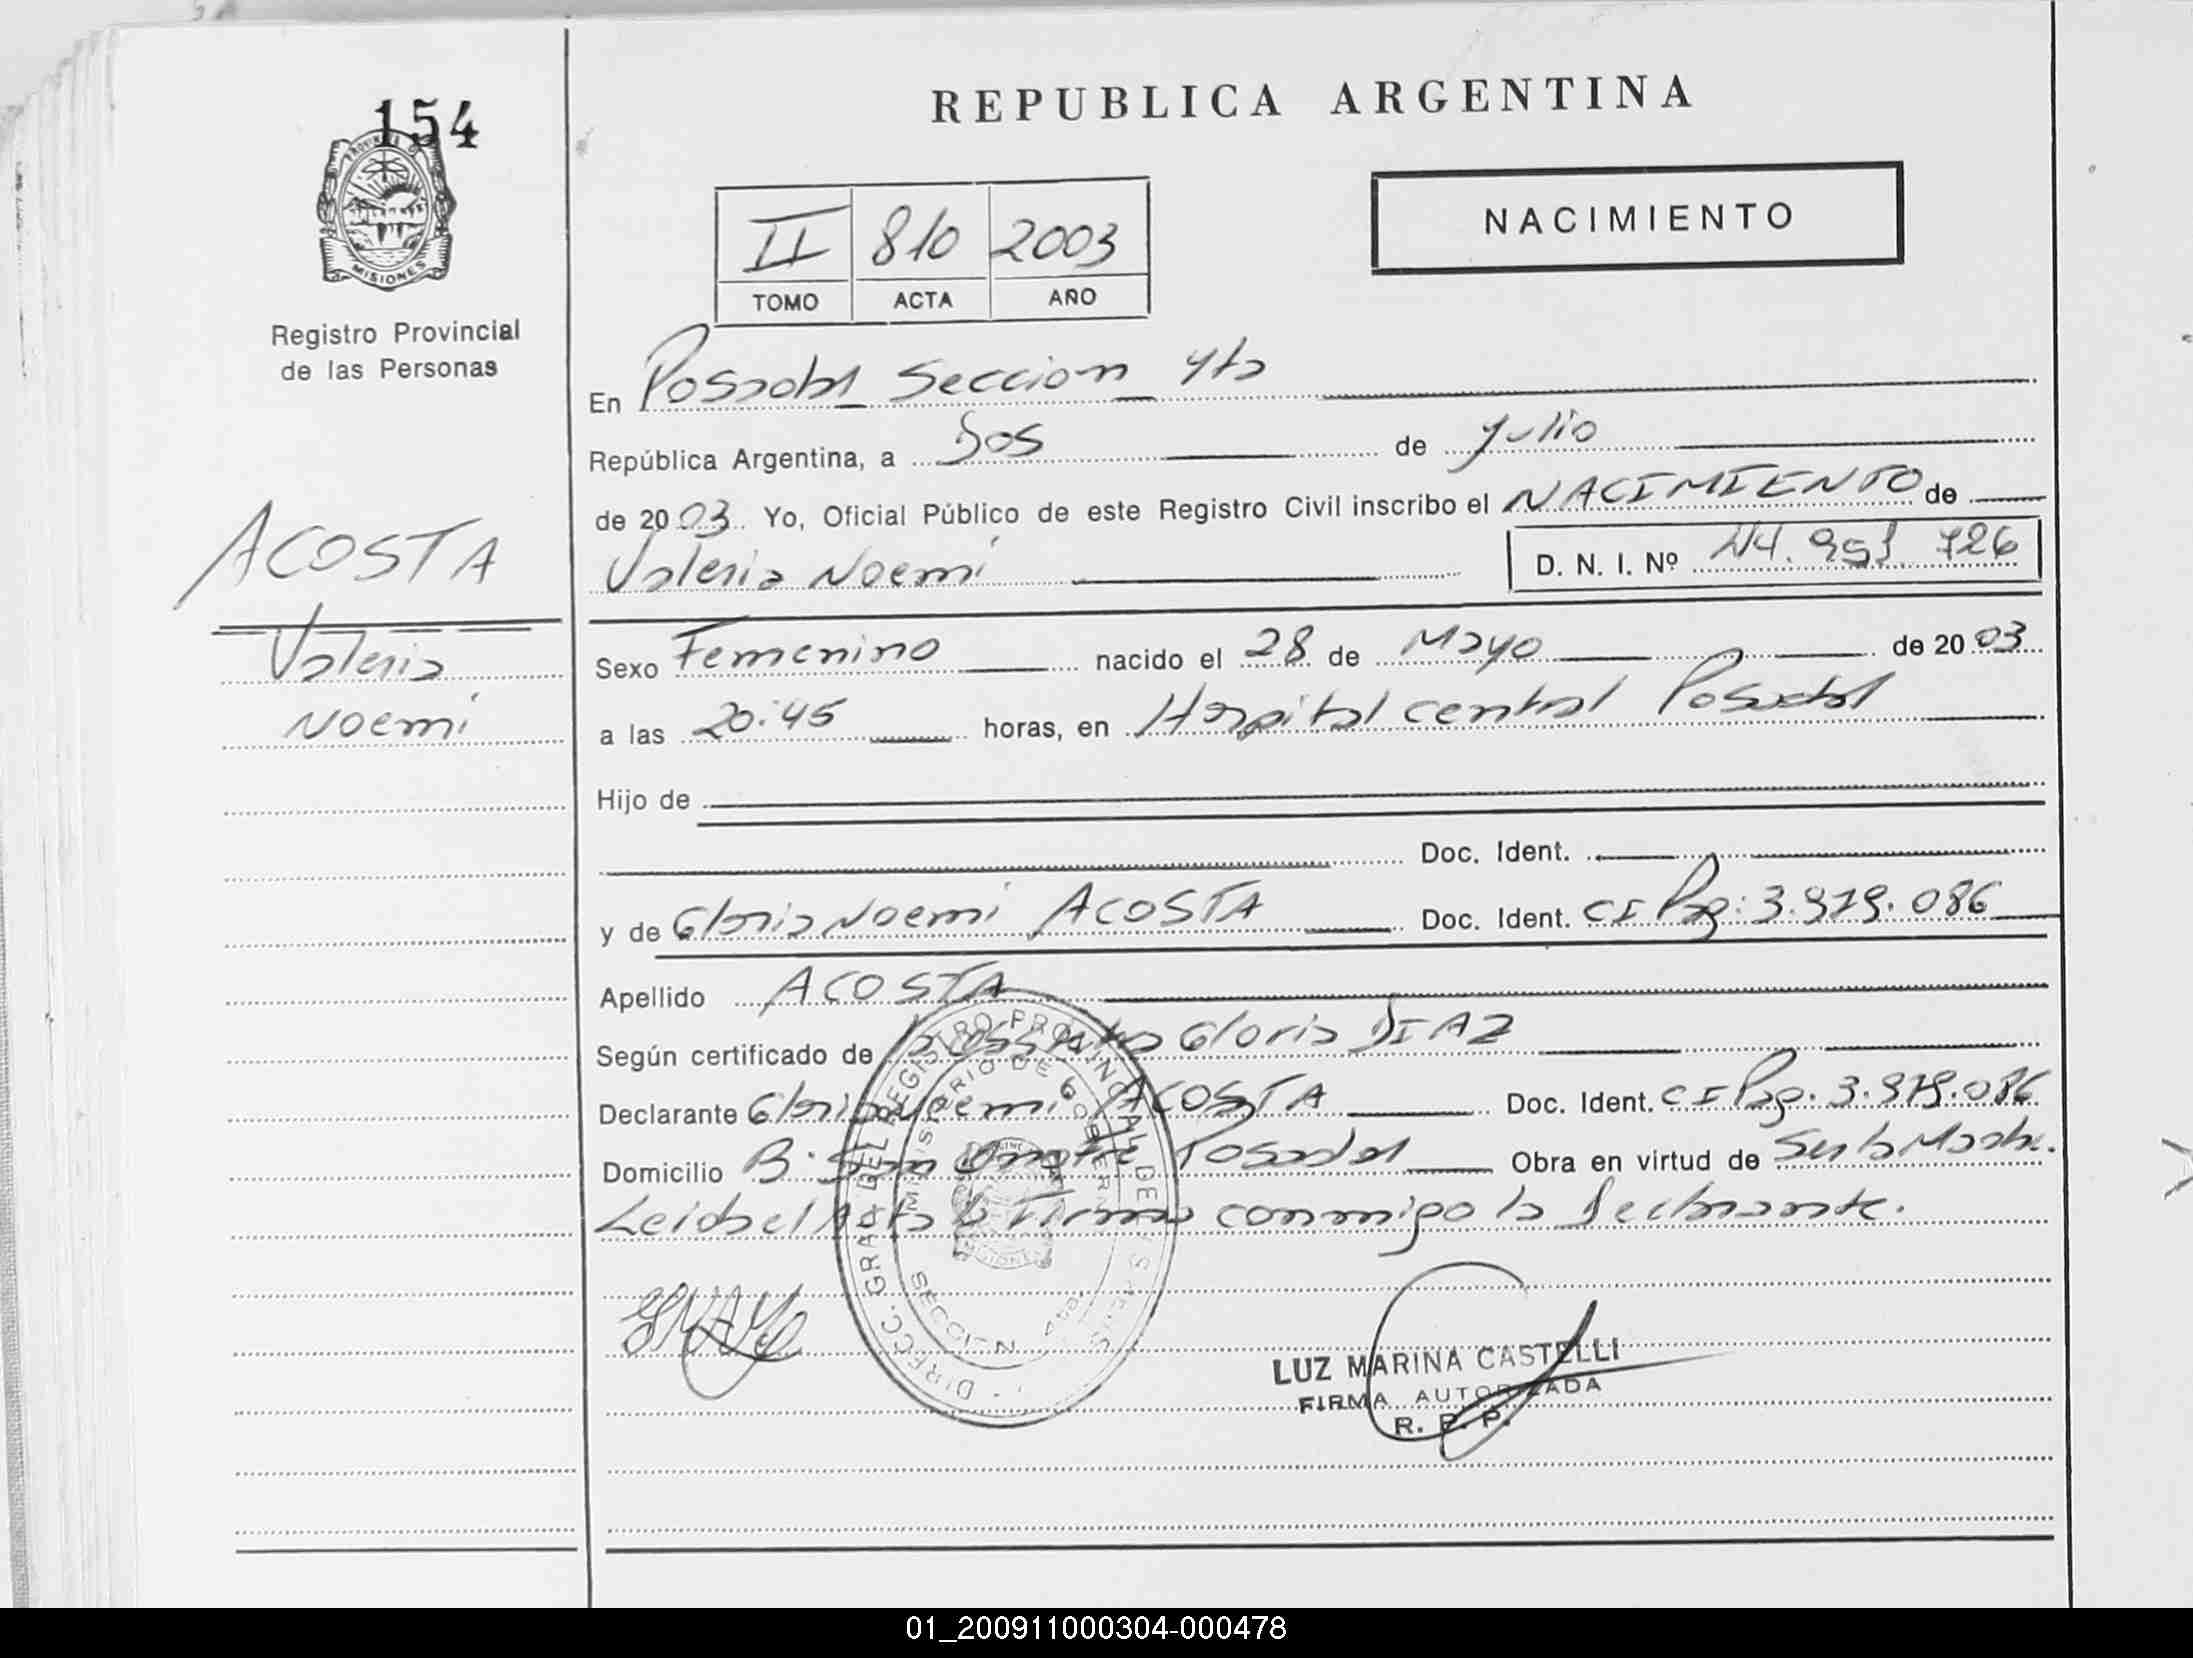 REPUBLICA ARGENTINA
154
PROVINCIA DE
MISIONES
Registro Provincial
de las Personas
II 810 2003
TOMO ACTA AÑO
NACIMIENTO
En Posadas Seccion 4ta
República Argentina, a Dos de Julio
de 2003. Yo, Oficial Público de este Registro Civil inscribo el NACIMIENTO de
Valeria Noemí D. N. I. Nº 44.951.726
ACOSTA
Valeria
Noemí
Sexo Femenino nacido el 28 de Mayo de 2003
a las 20:45 horas, en Hospital central Posadas
Hijo de
Doc. Ident.
y de Gloria Noemí ACOSTA Doc. Ident. CI Pag: 3.979.086
Apellido ACOSTA
Según certificado de Gloria DIAZ
Declarante Gloria Noemí ACOSTA Doc. Ident. CI Pag. 3.979.086
Domicilio B. San Posadas Obra en virtud de Ser la Madre.
Leida el Acta la Firma conmigo la Declarante.
DIRECC. GRAL. DEL REGISTRO PROVINCIAL DE LAS
MINISTERIO DE GOBIERNO
SECCION 4ta.
LUZ MARINA CASTELLI
FIRMA AUTORIZADA
R. P. P.
01_200911000304-000478